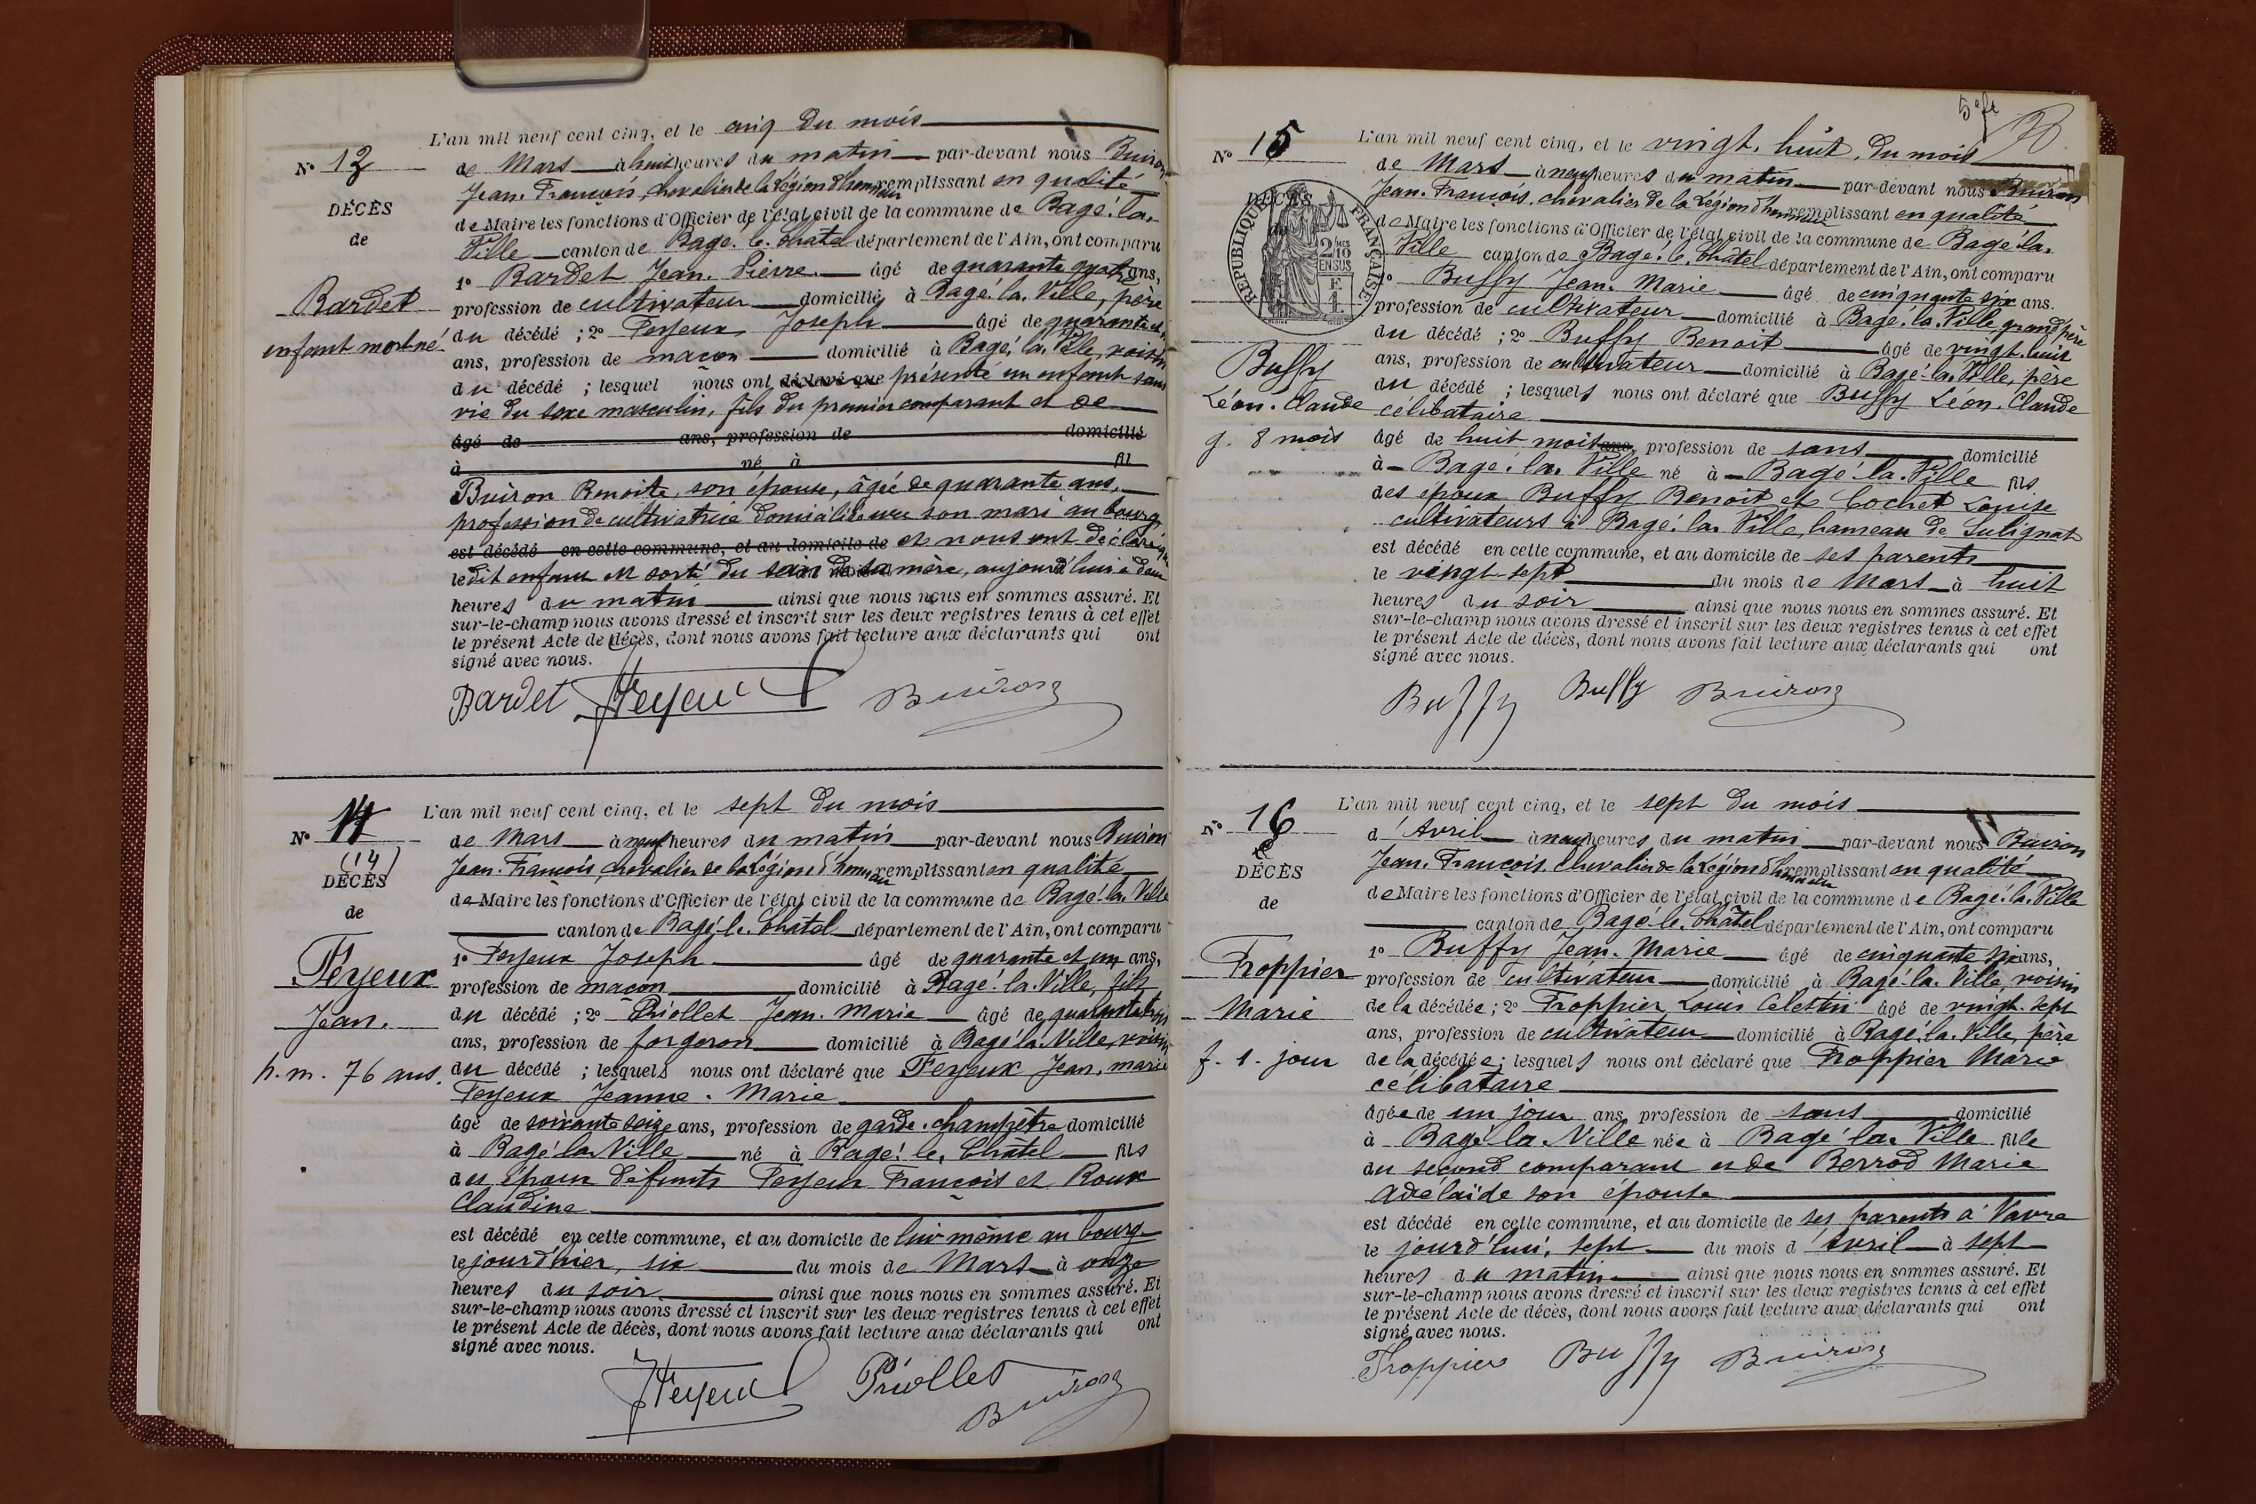 L'an mil neuf cent cinq, et le cinq du mois
N° 13
de Mars à huit heures du matin par-devant nous Buiron
Jean-François, chevalier de la Légion d'honneur remplissant en qualité
DÉCÈS
de Maire les fonctions d'Officier de l'état civil de la commune de Bagé-la-
de
Ville canton de Bagé-le-Châtel département de l'Ain, ont comparu
1° Bardet Jean-Pierre âgé de quarante quatre ans,
Bardet
profession de cultivateur domicilié à Bagé-la-Ville, père
enfant mort-né
du décédé ; 2° Feyeux Joseph âgé de quarante et un
ans, profession de maçon domicilié à Bagé-la-Ville, voisin
du décédé ; lesquel nous ont déclaré que présenté un enfant sans
vie du sexe masculin, fils du premier comparant et de
âgé de ans, profession de domicilié
à né à fil
Buiron Benoite, son épouse, âgée de quarante ans,
profession de cultivatrice domiciliée avec son mari au bourg
est décédé en cette commune, et au domicile de et nous ont déclaré que
le dit enfant est sorti du sein de sa mère, aujourd'hui à deux
heures du matin ainsi que nous nous en sommes assuré. Et
sur-le-champ nous avons dressé et inscrit sur les deux registres tenus à cet effet
le présent Acte de décès, dont nous avons fait lecture aux déclarants qui ont
signé avec nous.
Bardet JFeyeux Buiron
L'an mil neuf cent cinq, et le sept du mois
N° 14
de Mars à neuf heures du matin par-devant nous Buiron
(14)
Jean-François, chevalier de la Légion d'honneur remplissant en qualité
DÉCÈS
de Maire les fonctions d'Officier de l'état civil de la commune de Bagé-la-Ville
de
canton de Bagé-le-Châtel département de l'Ain, ont comparu
1° Feyeux Joseph âgé de quarante et un ans,
Feyeux
profession de maçon domicilié à Bagé-la-Ville, fils
Jean.
du décédé ; 2° Priollet Jean-Marie âgé de quarante trois
ans, profession de forgeron domicilié à Bagé-la-Ville, voisin
h. m. 76 ans.
du décédé ; lesquels nous ont déclaré que Feyeux Jean, marié
Feyeux Jeanne-Marie
âgé de soixante seize ans, profession de garde-champêtre domicilié
à Bagé-la-Ville né à Bagé-le-Châtel fils
des époux défunts Feyeux François et Roux
Claudine
est décédé en cette commune, et au domicile de lui-même au bourg
le jour d'hier, six du mois de Mars à onze
heures du soir ainsi que nous nous en sommes assuré. Et
sur-le-champ nous avons dressé et inscrit sur les deux registres tenus à cet effet
le présent Acte de décès, dont nous avons fait lecture aux déclarants qui ont
signé avec nous.
JFeyeux Priollet
Buiron
5e ft
L'an mil neuf cent cinq, et le vingt-huit du mois
N° 15
de Mars à neuf heures du matin par-devant nous Buiron
Jean-François, chevalier de la Légion d'honneur remplissant en qualité
DÉCÈS
RÉPUBLIQUE FRANÇAISE
2/10 EN SUS
F. 1.
de Maire les fonctions d'Officier de l'état civil de la commune de Bagé-la-
Ville canton de Bagé-le-Châtel département de l'Ain, ont comparu
1° Buffy Jean-Marie âgé de cinquante six ans.
profession de cultivateur domicilié à Bagé-la-Ville grand'père
du décédé ; 2° Buffy Benoit âgé de vingt-huit
Buffy
ans, profession de cultivateur domicilié à Bagé-la-Ville, père
Léon-Claude
du décédé ; lesquels nous ont déclaré que Buffy Léon-Claude
célibataire
g. 8 mois
âgé de huit mois ans, profession de sans domicilié
à Bagé-la-Ville né à Bagé-la-Ville fils
des époux Buffy Benoit et Cochet Louise
cultivateurs à Bagé-la-Ville, hameau de Sulignat
est décédé en cette commune, et au domicile de ses parents
le vingt-sept du mois de Mars à huit
heures du soir ainsi que nous nous en sommes assuré. Et
sur-le-champ nous avons dressé et inscrit sur les deux registres tenus à cet effet
le présent Acte de décès, dont nous avons fait lecture aux déclarants qui ont
signé avec nous.
Buffy Buffy Buiron
L'an mil neuf cent cinq, et le sept du mois
N° 16
d'Avril à neuf heures du matin par-devant nous Buiron
Jean-François, chevalier de la Légion d'honneur remplissant en qualité
DÉCÈS
de Maire les fonctions d'Officier de l'état civil de la commune de Bagé-la-Ville
de
canton de Bagé-le-Châtel département de l'Ain, ont comparu
1° Buffy Jean-Marie âgé de cinquante six ans,
Froppier
profession de cultivateur domicilié à Bagé-la-Ville, voisin
Marie
de la décédée ; 2° Froppier Louis Célestin âgé de vingt-sept
ans, profession de cultivateur domicilié à Bagé-la-Ville, père
f. 1. jour
de la décédée ; lesquels nous ont déclaré que Froppier Marie
célibataire
âgée de un jour ans, profession de sans domicilié
à Bagé-la-Ville née à Bagé-la-Ville fille
du second comparant et de Berrod Marie
Adélaïde son épouse
est décédé en cette commune, et au domicile de ses parents à Vavre
le jourd'hui, sept du mois d'Avril à sept
heures du matin ainsi que nous nous en sommes assuré. Et
sur-le-champ nous avons dressé et inscrit sur les deux registres tenus à cet effet
le présent Acte de décès, dont nous avons fait lecture aux déclarants qui ont
signé avec nous.
Froppier Buffy Buiron